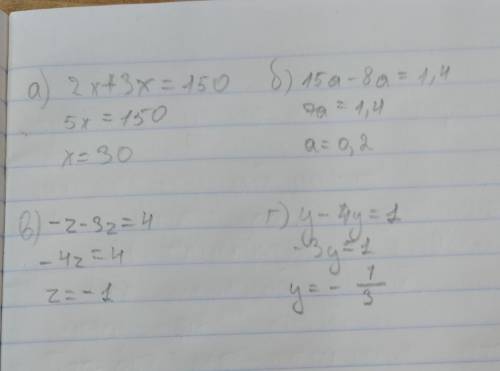 а) 2x+3x=150
5x=150
x=30
б) 15a-8a=1,4
7a=1,4
a=0,2
в) -z-3z=4
-4z=4
z=-1
г) y-4y=1
-3y=1
y=-1/3